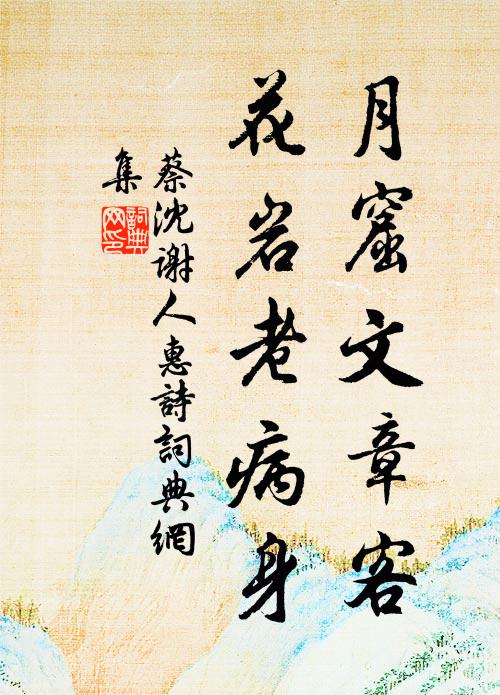 月窟文章客
花岩老病身
蔡沈谢人惠詩詞典網
集
詞典网印